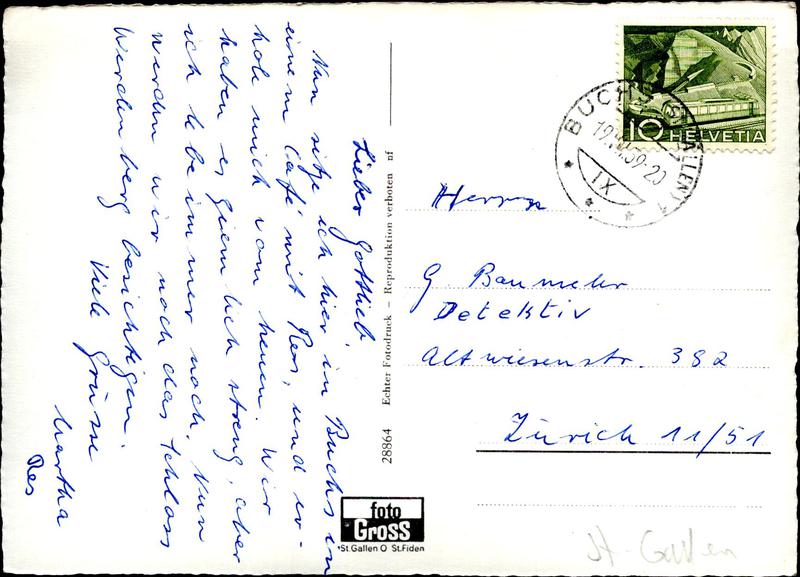 Lieber Gottlieb,
Nun sitze ich hier in Buchs in
einem Café mit Res, und er-
hole mich vom heuen. Wir
haben es ziemlich streng, aber
ich lebe immer noch. Nun
werden wir noch das Schloss
Werdenberg besichtigen.
Viele Grüsse
Martha
Res
28864 Echter Fotodruck – Reproduktion verboten nf
foto
Gross
St.Gallen O St.Fiden
10 HELVETIA
BUCHS (ST. GALLEN) 1
59-20
IX
Herrn
G Baumeler
Detektiv
Altwiesenstr. 382
Zürich 11/51
St. Gallen